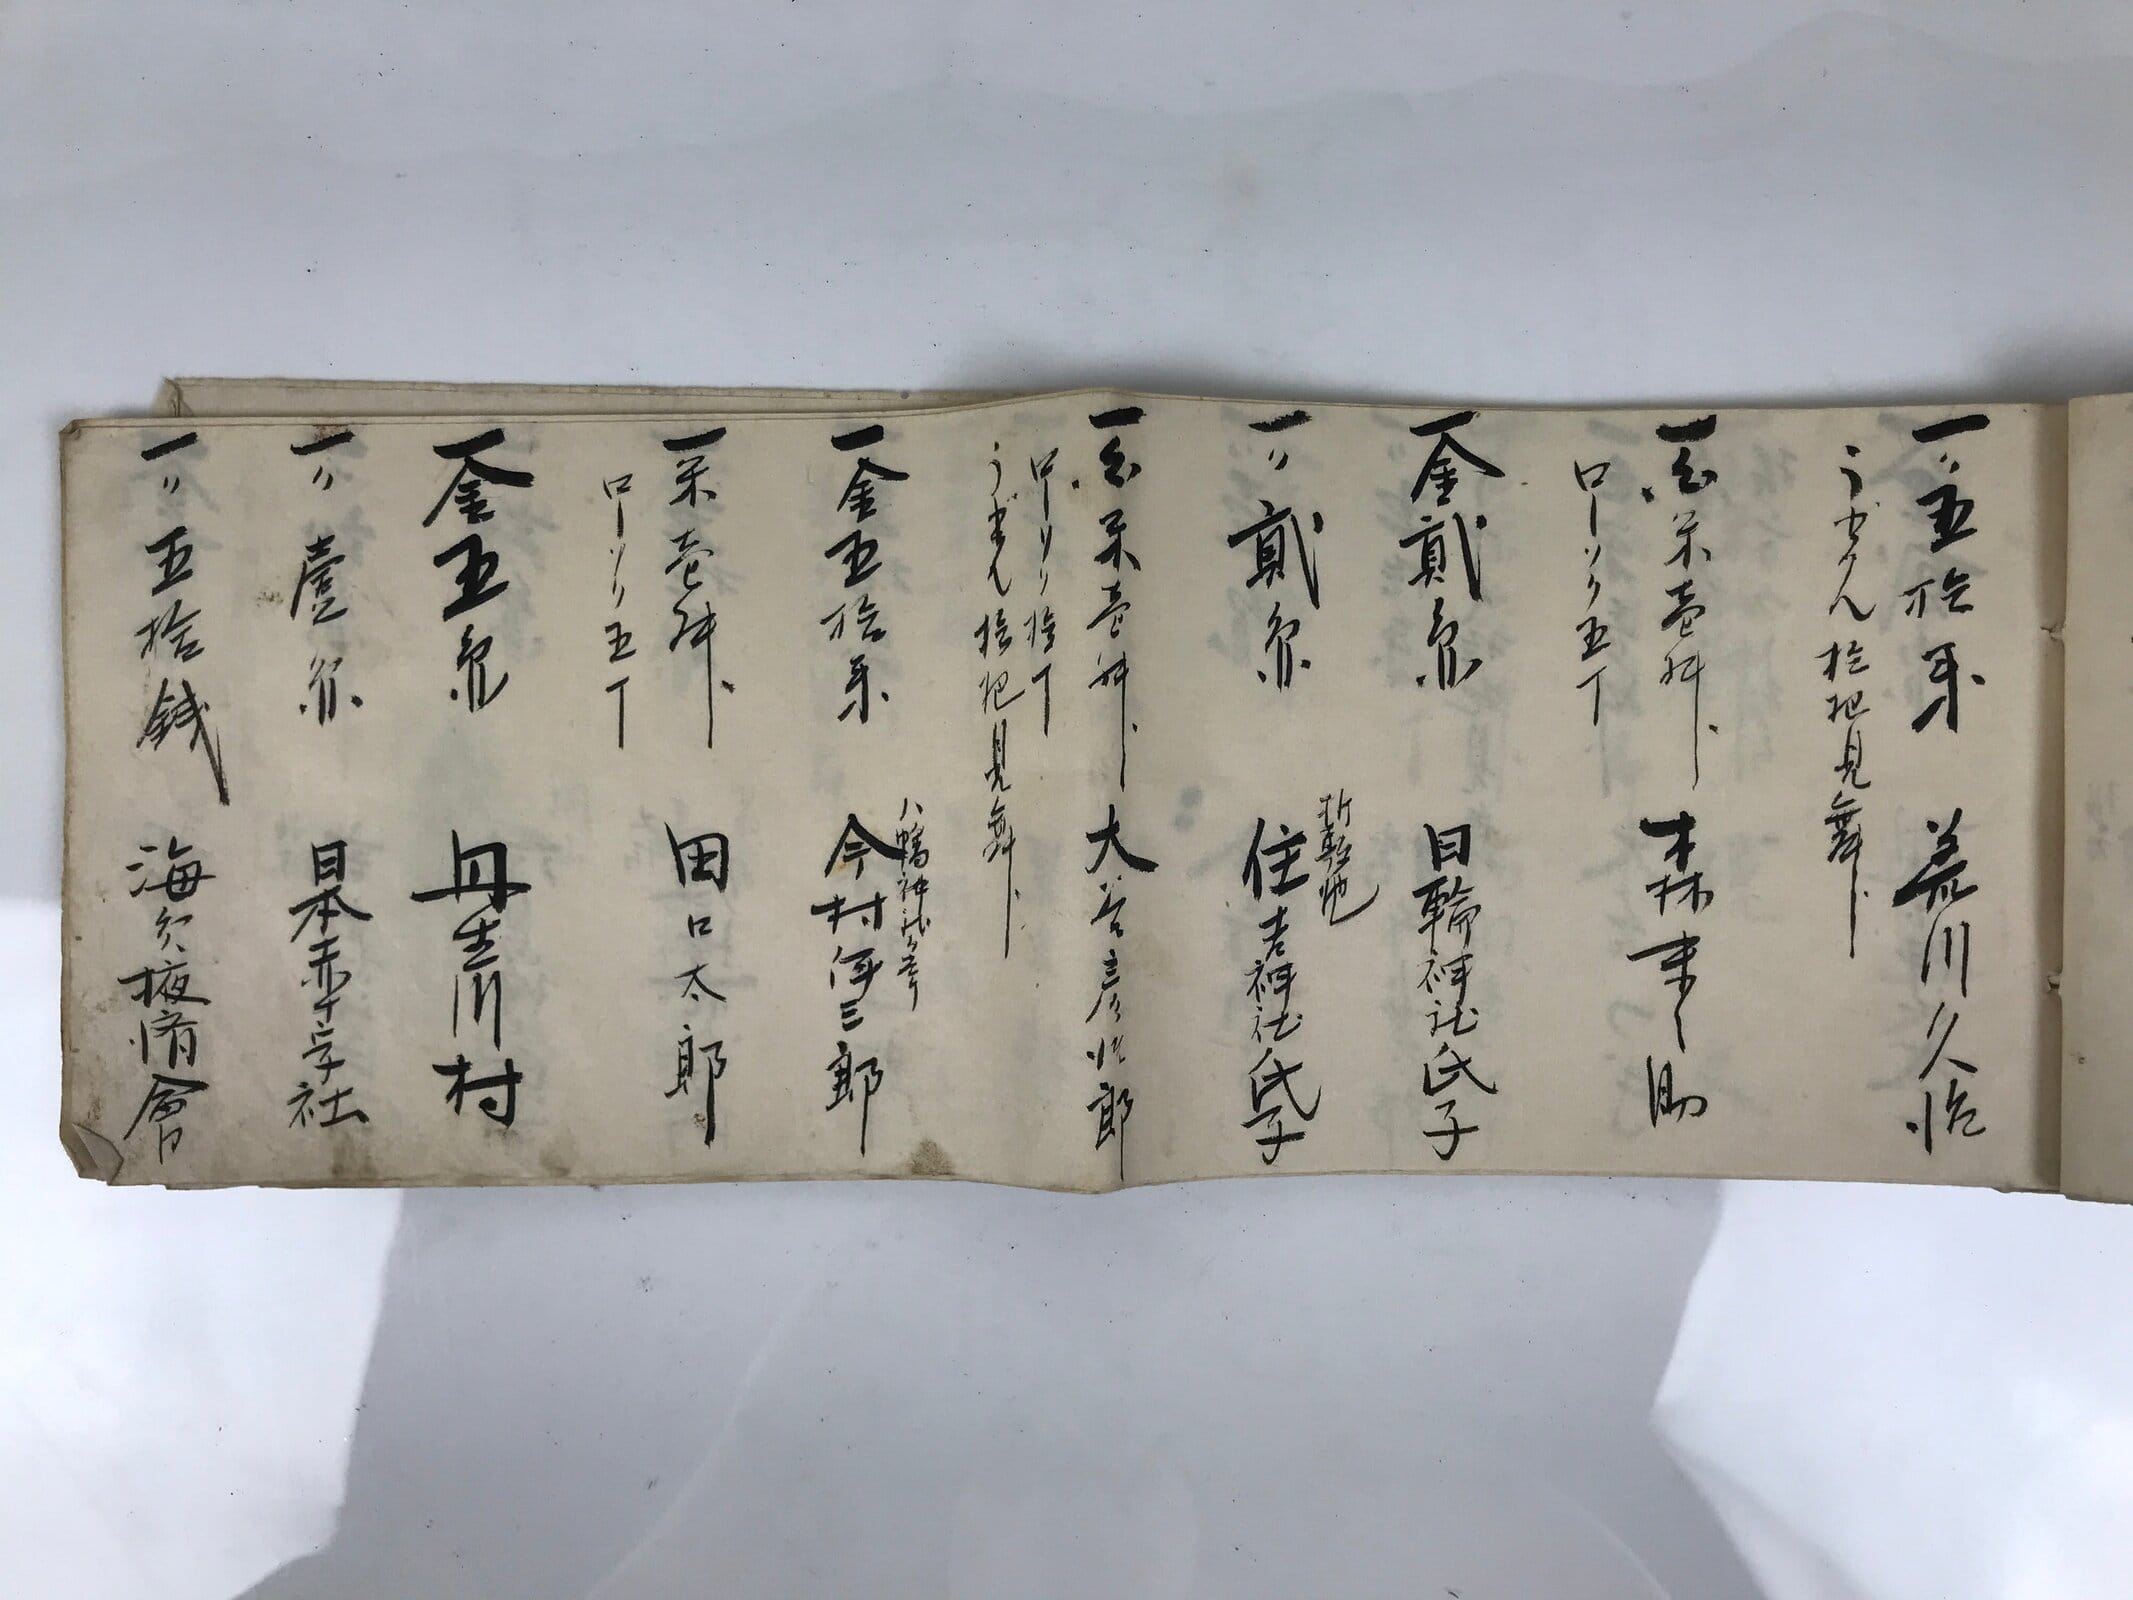 一〃五拾銭 荒川久治
うどん拾把見舞
一白米壱升 森末之助
ローソク五丁
一金貳円 日輪神社氏子
一〃貳円 住吉神社氏子
新転地
一白米壱升 大谷彦次郎
ローソク拾丁
うどん拾把見舞
八幡神社
一金五拾銭 今村伊三郎
一米壱升 田口太郎
ローソク五丁
一金五円 丹生川村
一〃壹円 日本赤十字社
一〃五拾銭 海員掖済會